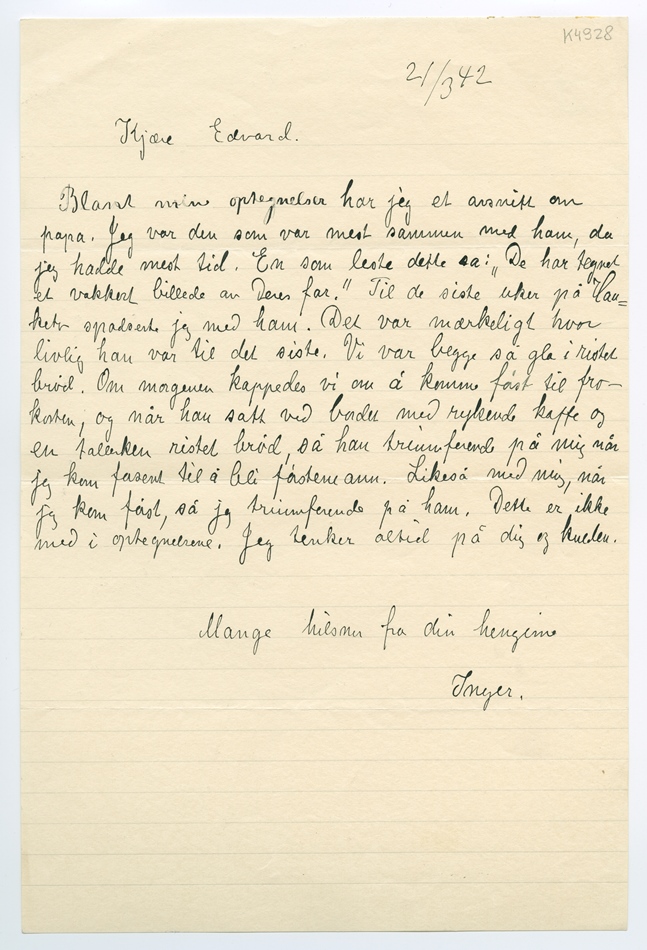 K4928
21/3 42
Kjære Edvard.
Blant mine optegnelser har jeg et avsnitt om
papa. Jeg var den som var mest sammen med ham, da
jeg hadde mest tid. En som leste dette sa: „De har tegnet
et vakkert billede av Deres far." Til de siste uker på Hau=
keto spaserte jeg med ham. Det var mærkeligt hvor
livlig han var til det siste. Vi var begge så gla i ristet
brød. Om morgenen kappedes vi om å komme først til fro-
kosten, og når han satt ved bordet med rykende kaffe og
en tallerken ristet brød, så han triumferende på mig når
jeg kom farent til å bli førstemann. Likeså med mig, når
jeg kom først, så jeg triumferende på ham. Dette er ikke
med i optegnelsene. Jeg tenker altid på dig og kulden.
Mange hilsner fra din hengivne
Inger.